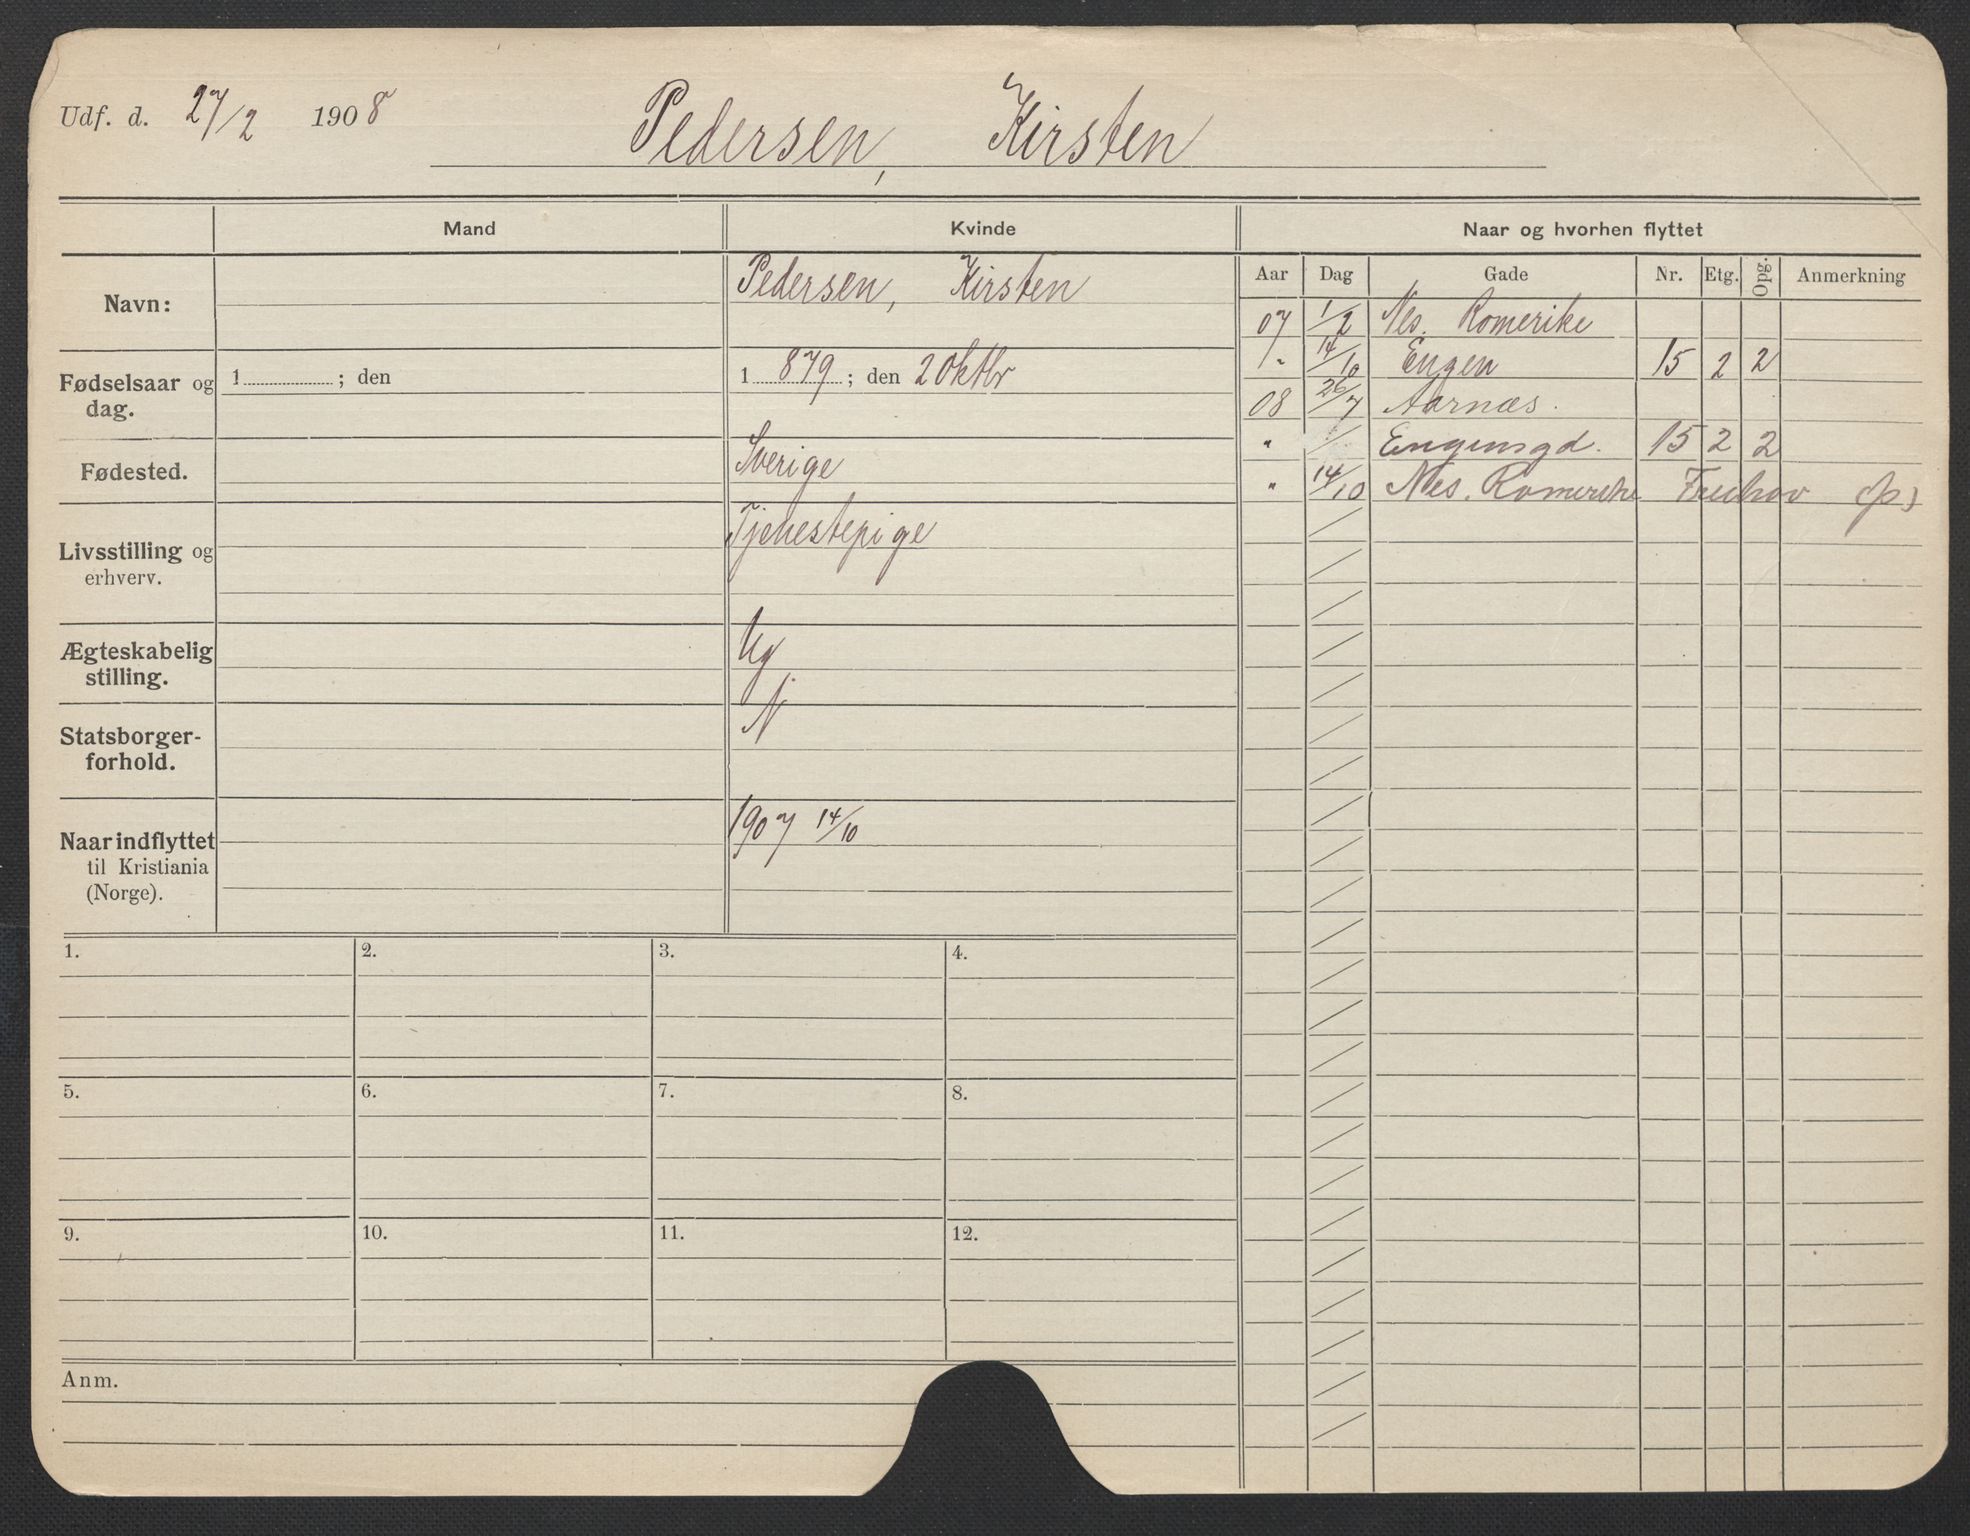 Udf. d. 27/2 1908
Pedersen, Kirsten
Mand
Kvinde
Naar og hvorhen flyttet
Navn:
Pedersen, Kirsten
Fødselsaar og dag.
1 ; den
1 879 ; den 2 Oktbr
Fødested.
Sverige
Livsstilling og erhverv.
Tjenestepige
Ægteskabelig stilling.
Ug
Statsborgerforhold.
N
Naar indflyttet til Kristiania (Norge).
1907 14/10
Aar Dag Gade Nr. Etg. Opg. Anmerkning
07 1/2 Nes. Romerike
" 14/10 Engen 15 2 2
08 26/7 Aarnæs.
" / Engensgd. 15 2 2
" 14/10 Nes. Romerike
1. 2. 3. 4.
5. 6. 7. 8.
9. 10. 11. 12.
Anm.